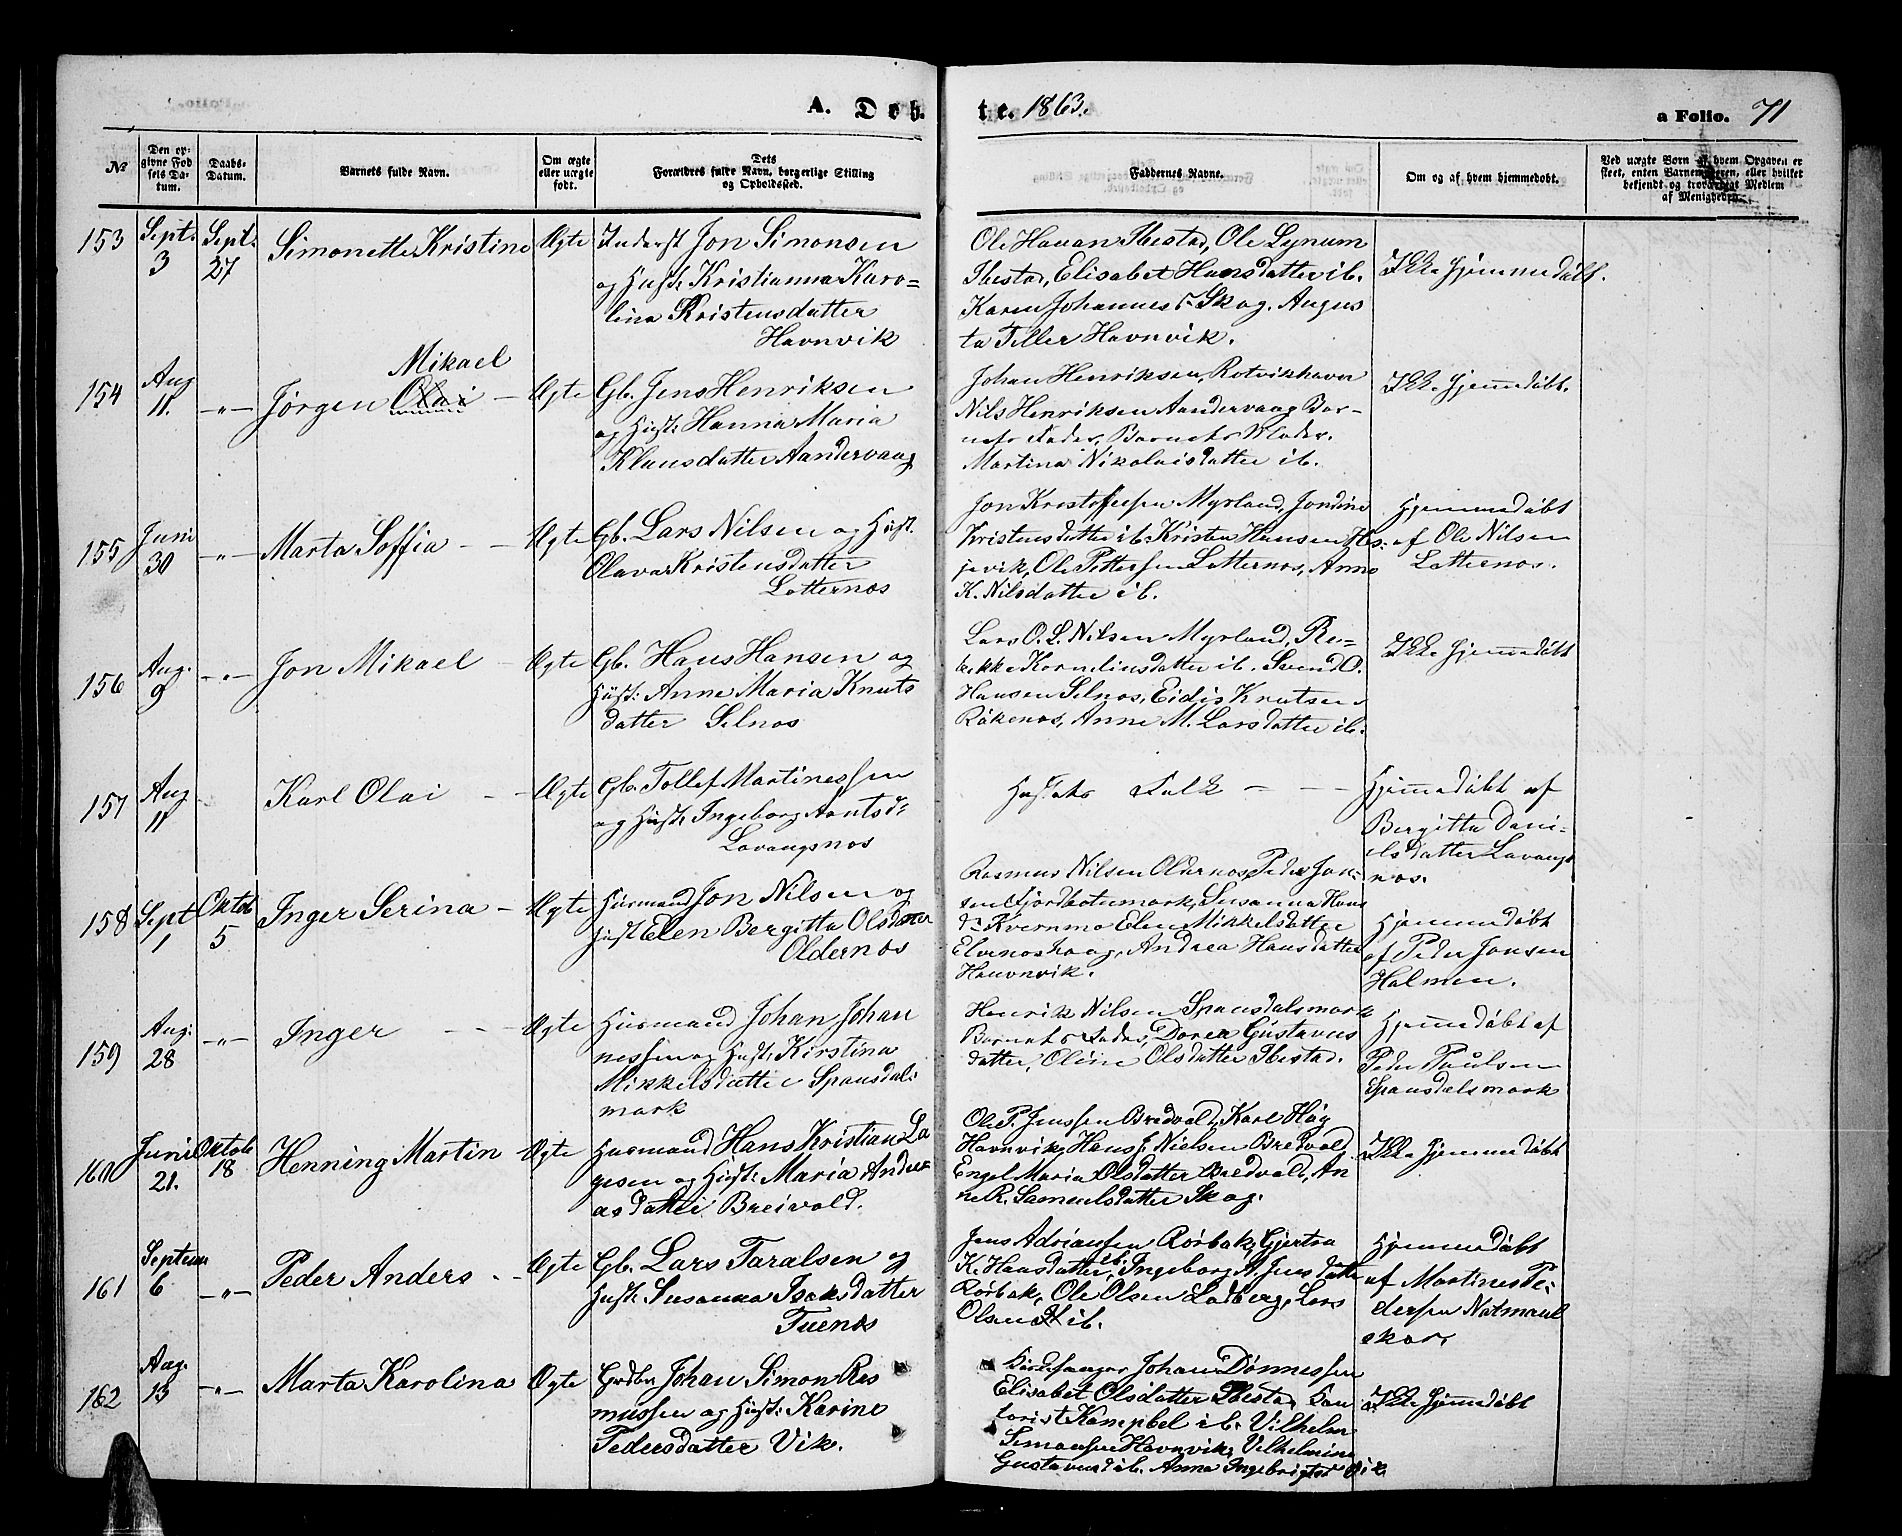 A. Døbte. 1863. a Folio. 71
№
Den opgivne Fødsels Datum.
Daabs-Datum.
Barnets fulde Navn.
Om ægte eller uægte født.
Dets Forældres fulde Navn, borgerlige Stilling og Opholdssted.
Faddernes Navne.
Om og af hvem hjemmedøbt.
Ved uægte Børn af hvem Opgaven er skeet, enten Barnemoderen, eller hvilket bekjendt og troværdigt Medlem af Menigheden.
153 Sept. 3 Sept. 27 Simonette Kristine Ægte
Inderst Jon Simonsen
og Hust: Kristianna Karo-
lina Kristensdatter
Havnvik
Ole Havan Ibestad, Ole Lynum
Ibestad, Elisabet Hansdatter ib.
Karen Johannesd. Skog. Augus
ta Teller Havnvik.
Ikke hjemmedøbt.
154 Aug 11. -"- Jørgen Mikael Olai - Ægte
Gb. Jens Henriksen
og Hust: Hanna Maria
Klausdatter Aandervaag
Johan Henriksen, Rotvikhaven
Nils Henriksen Aandervaag Bar-
nets Fader, Barnets Moder.
Martina Nikolaisdatter ib.
Ikke hjemmedøbt.
155 Juni 30 -"- Marta Soffia - - Ægte
Gb. Lars Nilsen og Hust.
Olava Kristensdatter
Lotternos
Jon Kristoffersen Myrland, Jondine
Kristensdatter ib. Kristen Hansen Hes-
jevik, Ole Pettersen Lotternos, Anne
K. Nilsdatter ib.
Hjemmedøbt
af Ole Nilsen
Lotternos.
156 Aug. 9 -"- Jon Mikael - Ægte
Gb. Hans Hansen og
Hust: Anne Maria Knuts
datter Selnos
Lars O. L. Nilsen Myrland, Re-
bekke Korneliusdatter ib. Svend O.
Hansen Selnos, Eidis Knutsen
Røkenos, Anne M. Larsdatter ib.
Ikke hjemmedøbt
157 Aug 11 - Karl Olai - - Ægte
Gb. Tollef Martinessen
og Hust: Ingeborg Aantsd:
Lavangsnos
Hustets Folk - - -
Hjemmedøbt af
Bergitta Dani-
elsdatter Lavangs
nos.
158 Sept 1 Oktob 5 Inger Serina - Ægte
Husmand Jon Nilsen og
Hust Elen Bergitta Olsdatter
Oldernos
Rasmus Nilsen Oldernos, Peder Jon-
sen Fjordbotnmark, Susanna Hans
d: Kvernmo Elen Mikkelsdatter
Elvenoshaag, Andrea Hansdatter
Havnvik.
Hjemmedøbt
af Peder Jonsen
Holmen.
159 Aug: 28 -"- Inger - - - Ægte
Husmand Johan Johan
nessen og Hust: Kirstina
Mikkelsdatter Spansdals
mark
Henrik Nilsen Spansdalsmark
Barnets Fader, Dorea Gustavus
datter, Oline Olsdatter Ibestad.
Hjemmedøbt af
Peder Paulsen
Spansdalsmark
160 Juni 21. Oktob 18 Henning Martin Ægte
Husmand Hans Kristian La
gesen og Hust: Maria Andre
asdatter Breivold.
Ole P. Jenssen Bredvold, Karl Høg
Havnvik, Hans J. Nielsen Bredvold
Engel Maria Olsdatter Bredvold, An
ne R. Samuelsdatter Skog.
Ikke hjemmedøbt
161 Septem 6 -"- Peder Anders - - Ægte
Gb. Lars Taralsen og
Hust: Susanna Isaksdatter
Tuenos
Jens Adriansen Rørbak, Gjertru
K. Hansdatter ib. Ingeborg A. Jensdatter
Rørbak, Ole Olsen Ladberg, Lars
Olsen ib.
Hjemmedøbt
af Martines Pe-
dersen Notmaul
skar.
162 Aug. 13 -"- Marta Karolina Ægte
Grdbr. Johan Simon Ras
mussen og Hust: Karine
Pedersdatter Vik.
Kirkesanger Johan Dønnessen
Elisabet Olsdatter Ibestad Kon
torist Kampbel ib. Vilhelm
Simonsen Havnvik, Vilhelmine
Gustavusd ib. Anna Ingebrigtsd Vik
Ikke hjemmedøbt